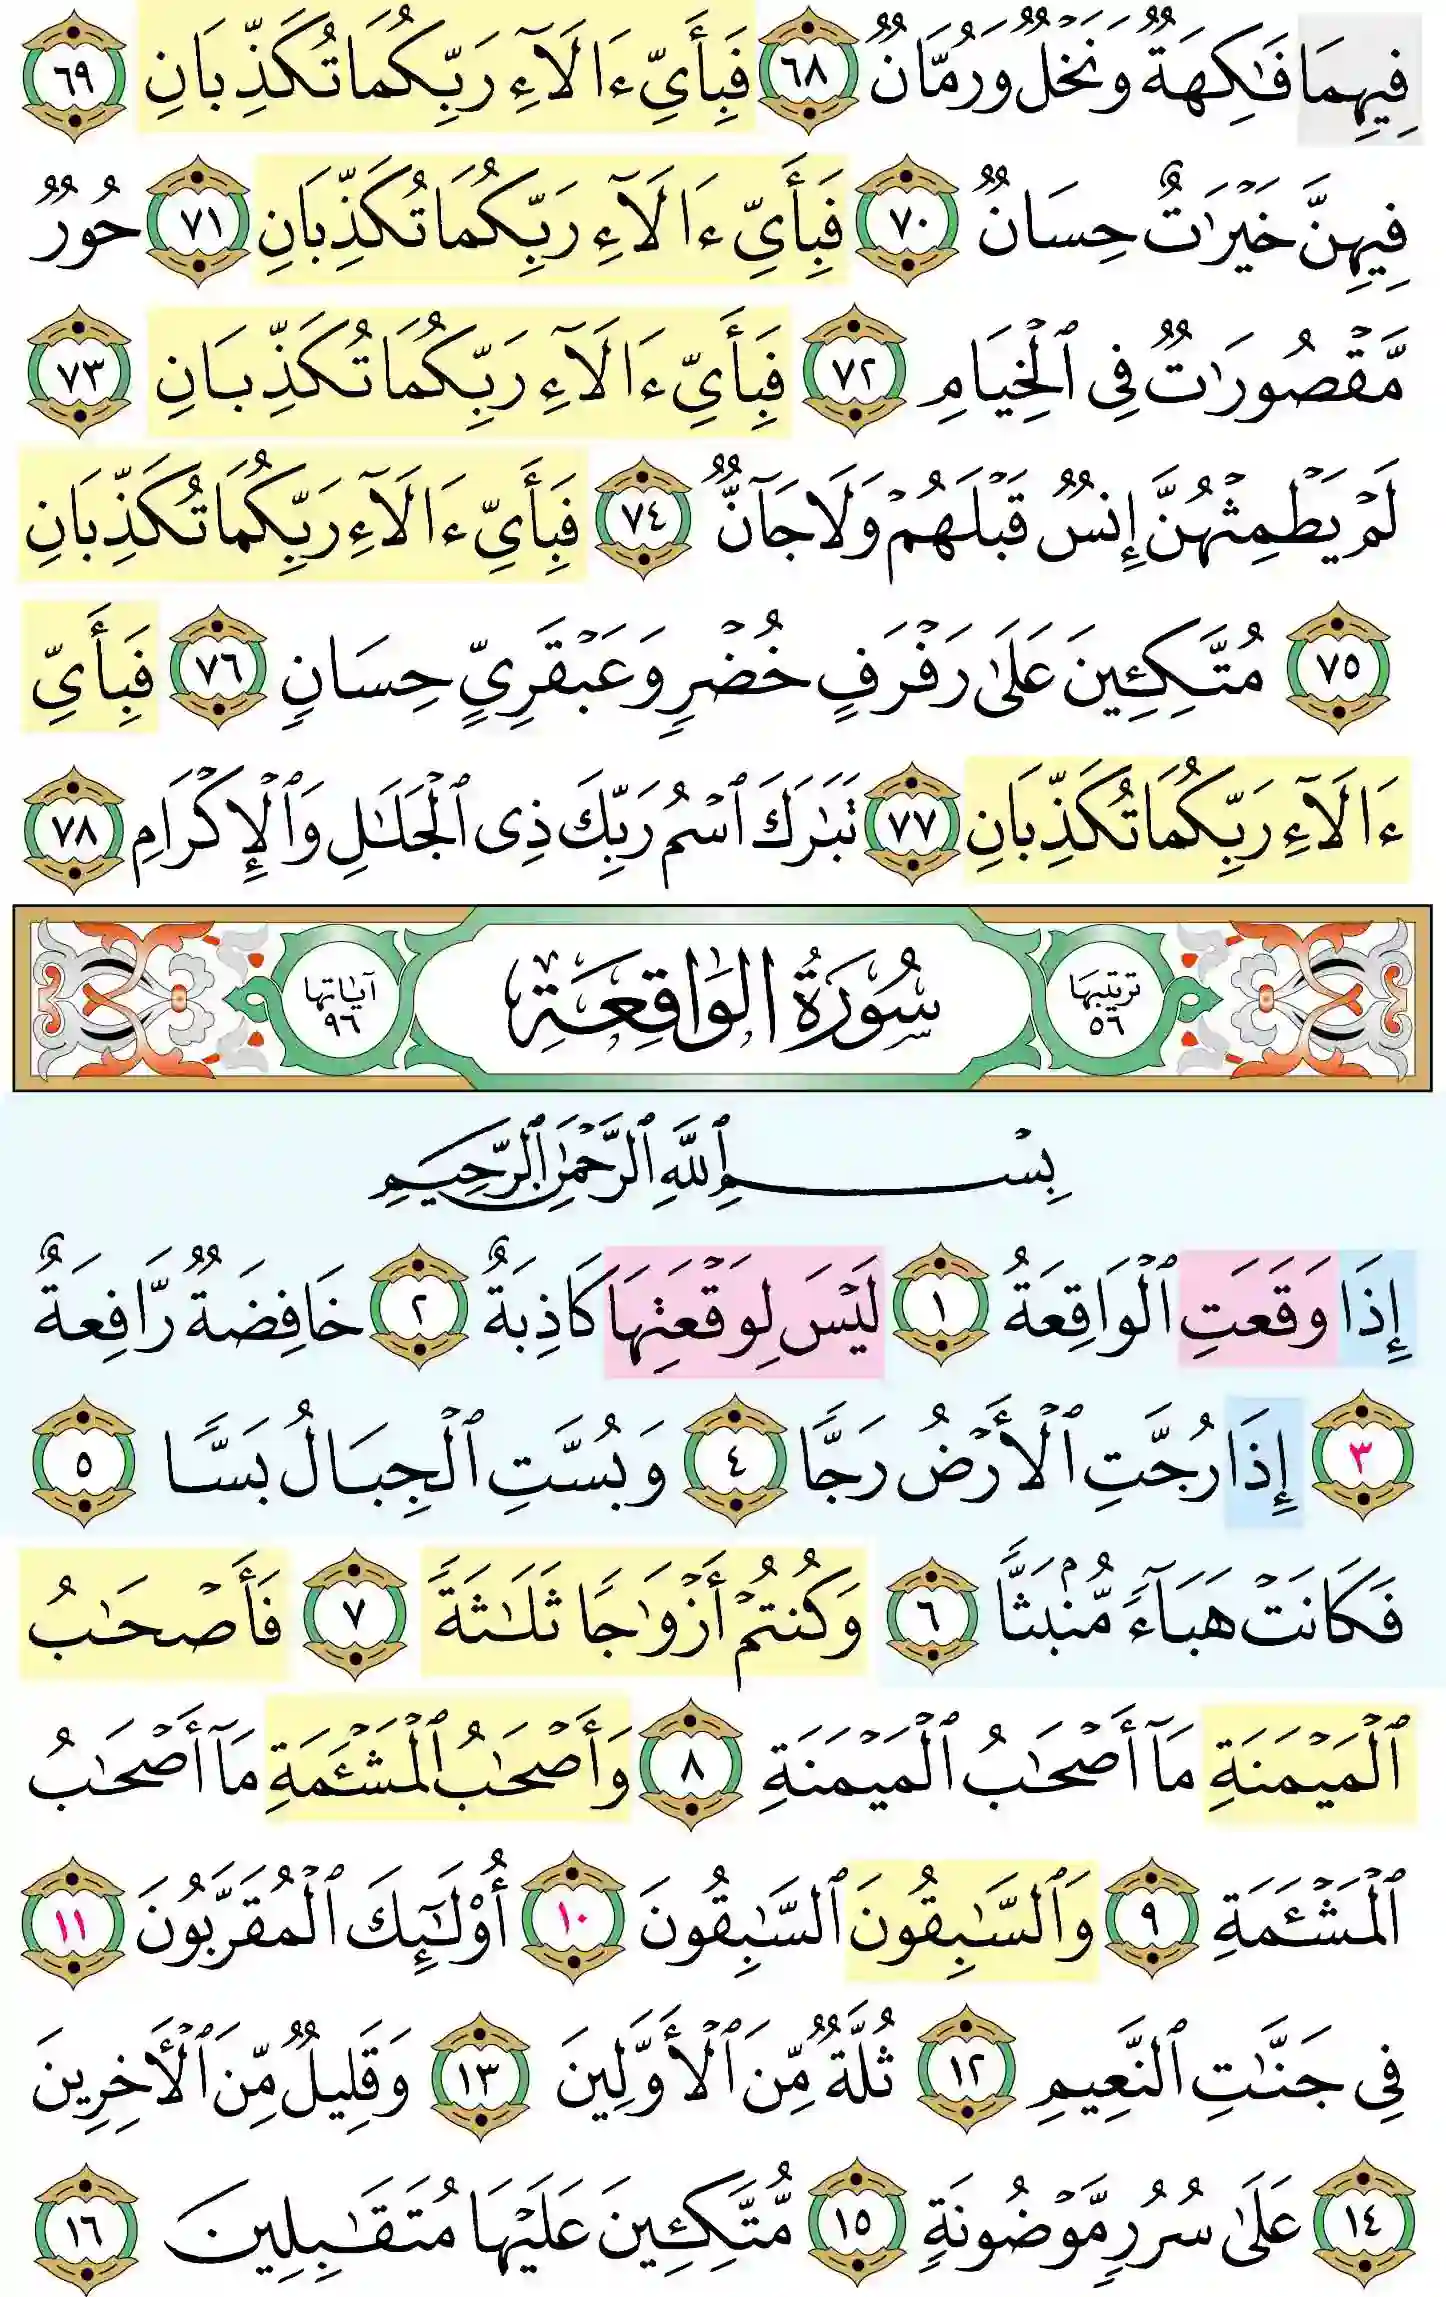 فِيهِمَا فَٰكِهَةٌ وَنَخْلٌ وَرُمَّانٌ ٦٨ فَبِأَيِّ ءَالَآءِ رَبِّكُمَا تُكَذِّبَانِ ٦٩
فِيهِنَّ خَيْرَٰتٌ حِسَانٌ ٧٠ فَبِأَيِّ ءَالَآءِ رَبِّكُمَا تُكَذِّبَانِ ٧١ حُورٌ
مَّقْصُورَٰتٌ فِى ٱلْخِيَامِ ٧٢ فَبِأَيِّ ءَالَآءِ رَبِّكُمَا تُكَذِّبَانِ ٧٣
لَمْ يَطْمِثْهُنَّ إِنسٌ قَبْلَهُمْ وَلَا جَآنٌّ ٧٤ فَبِأَيِّ ءَالَآءِ رَبِّكُمَا تُكَذِّبَانِ
٧٥ مُتَّكِـِٔينَ عَلَىٰ رَفْرَفٍ خُضْرٍ وَعَبْقَرِيٍّ حِسَانٍ ٧٦ فَبِأَيِّ
ءَالَآءِ رَبِّكُمَا تُكَذِّبَانِ ٧٧ تَبَٰرَكَ ٱسْمُ رَبِّكَ ذِى ٱلْجَلَٰلِ وَٱلْإِكْرَامِ ٧٨
ترتيبها ٥٦ سُورَةُ الوَاقِعَةِ آياتها ٩٦
بِسْمِ ٱللَّهِ ٱلرَّحْمَٰنِ ٱلرَّحِيمِ
إِذَا وَقَعَتِ ٱلْوَاقِعَةُ ١ لَيْسَ لِوَقْعَتِهَا كَاذِبَةٌ ٢ خَافِضَةٌ رَّافِعَةٌ
٣ إِذَا رُجَّتِ ٱلْأَرْضُ رَجًّا ٤ وَبُسَّتِ ٱلْجِبَالُ بَسًّا ٥
فَكَانَتْ هَبَآءً مُّنۢبَثًّا ٦ وَكُنتُمْ أَزْوَٰجًا ثَلَٰثَةً ٧ فَأَصْحَٰبُ
ٱلْمَيْمَنَةِ مَآ أَصْحَٰبُ ٱلْمَيْمَنَةِ ٨ وَأَصْحَٰبُ ٱلْمَشْـَٔمَةِ مَآ أَصْحَٰبُ
ٱلْمَشْـَٔمَةِ ٩ وَٱلسَّٰبِقُونَ ٱلسَّٰبِقُونَ ١٠ أُو۟لَٰٓئِكَ ٱلْمُقَرَّبُونَ ١١
فِى جَنَّٰتِ ٱلنَّعِيمِ ١٢ ثُلَّةٌ مِّنَ ٱلْأَوَّلِينَ ١٣ وَقَلِيلٌ مِّنَ ٱلْأَخِرِينَ
١٤ عَلَىٰ سُرُرٍ مَّوْضُونَةٍ ١٥ مُّتَّكِـِٔينَ عَلَيْهَا مُتَقَٰبِلِينَ ١٦